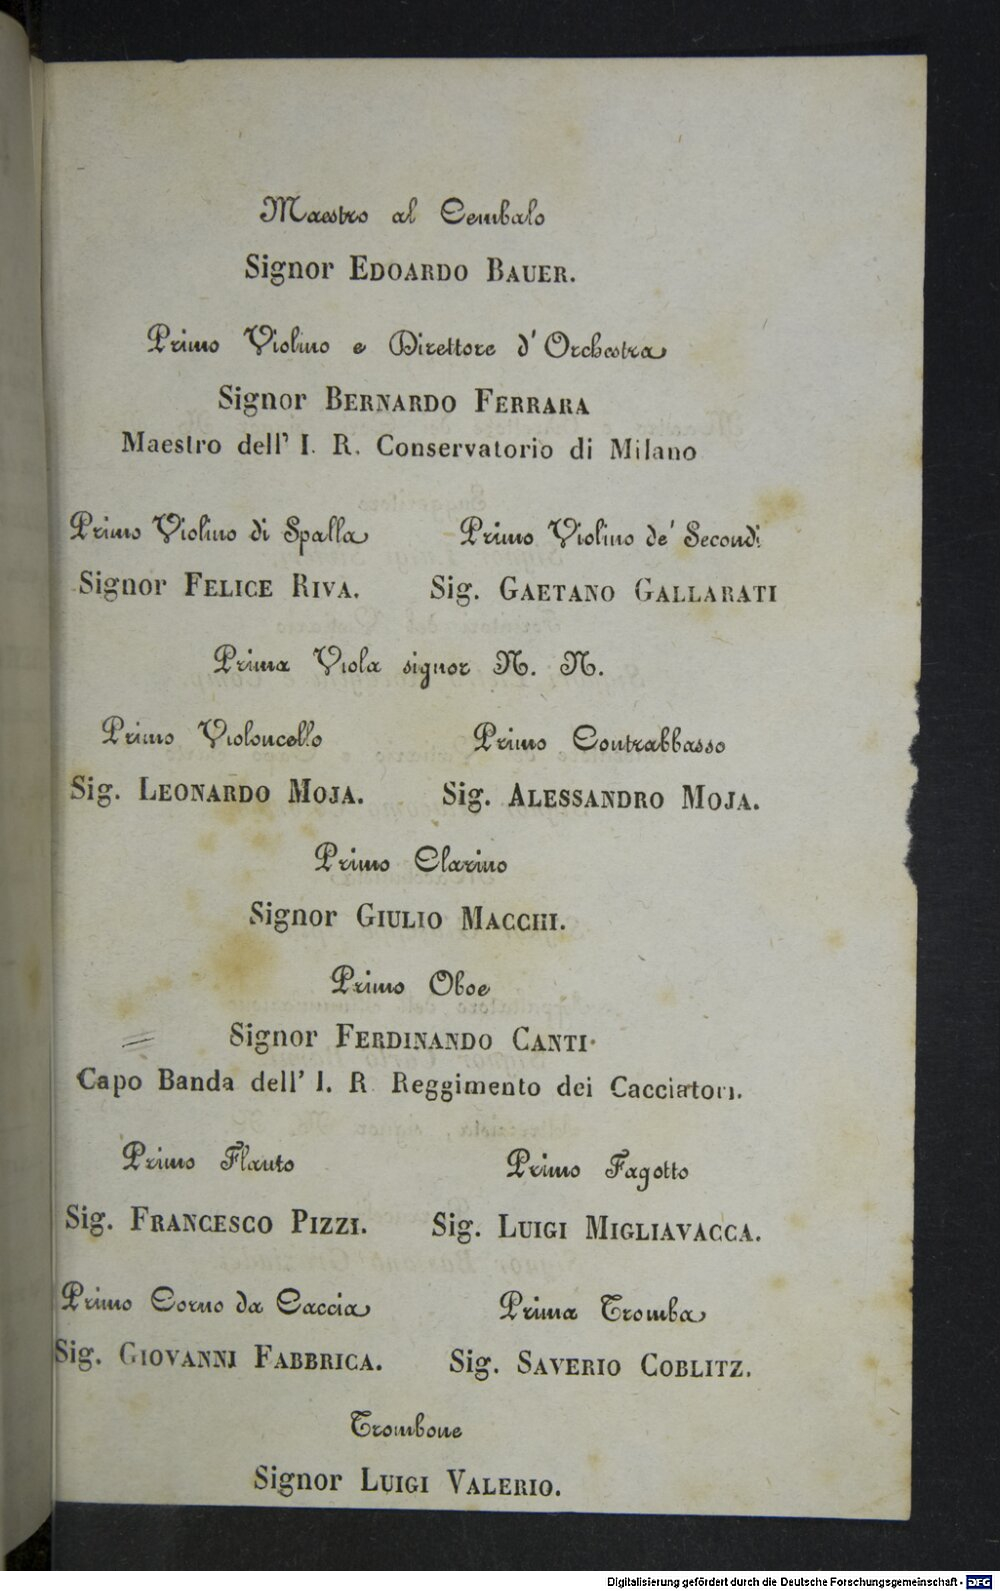 Maestro al Cembalo
Signor EDOARDO BAUER.
Primo Violino e Direttore d'Orchestra
Signor BERNARDO FERRARA
Maestro dell' I. R. Conservatorio di Milano
Primo Violino di Spalla
Signor FELICE RIVA.
Primo Violino de' Secondi
Sig. GAETANO GALLARATI
Prima Viola signor N. N.
Primo Violoncello
Sig. LEONARDO MOJA.
Primo Contrabbasso
Sig. ALESSANDRO MOJA.
Primo Clarino
Signor GIULIO MACCHI.
Primo Oboe
Signor FERDINANDO CANTI.
Capo Banda dell' I. R Reggimento dei Cacciatori.
Primo Flauto
Sig. FRANCESCO PIZZI.
Primo Fagotto
Sig. LUIGI MIGLIAVACCA.
Primo Corno da Caccia
Sig. GIOVANNI FABBRICA.
Prima Tromba
Sig. SAVERIO COBLITZ.
Trombone
Signor LUIGI VALERIO.
Digitalisierung gefördert durch die Deutsche Forschungsgemeinschaft - DFG